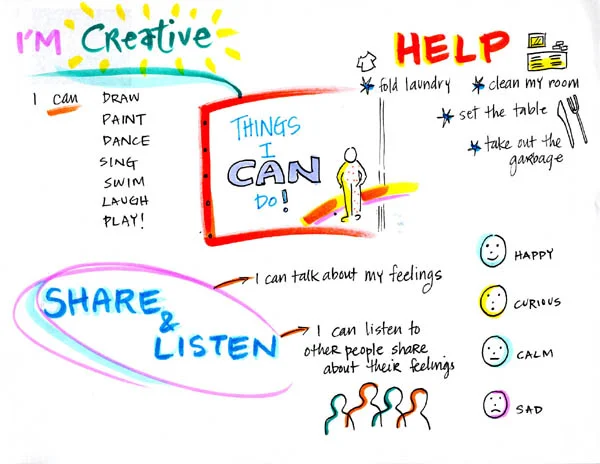 I'M CREATIVE
I can DRAW
PAINT
DANCE
SING
SWIM
LAUGH
PLAY!
THINGS
I
CAN
DO!
HELP
fold laundry
clean my room
set the table
take out the
garbage
SHARE
&
LISTEN
I can talk about my feelings
I can listen to
other people share
about their feelings
HAPPY
CURIOUS
CALM
SAD